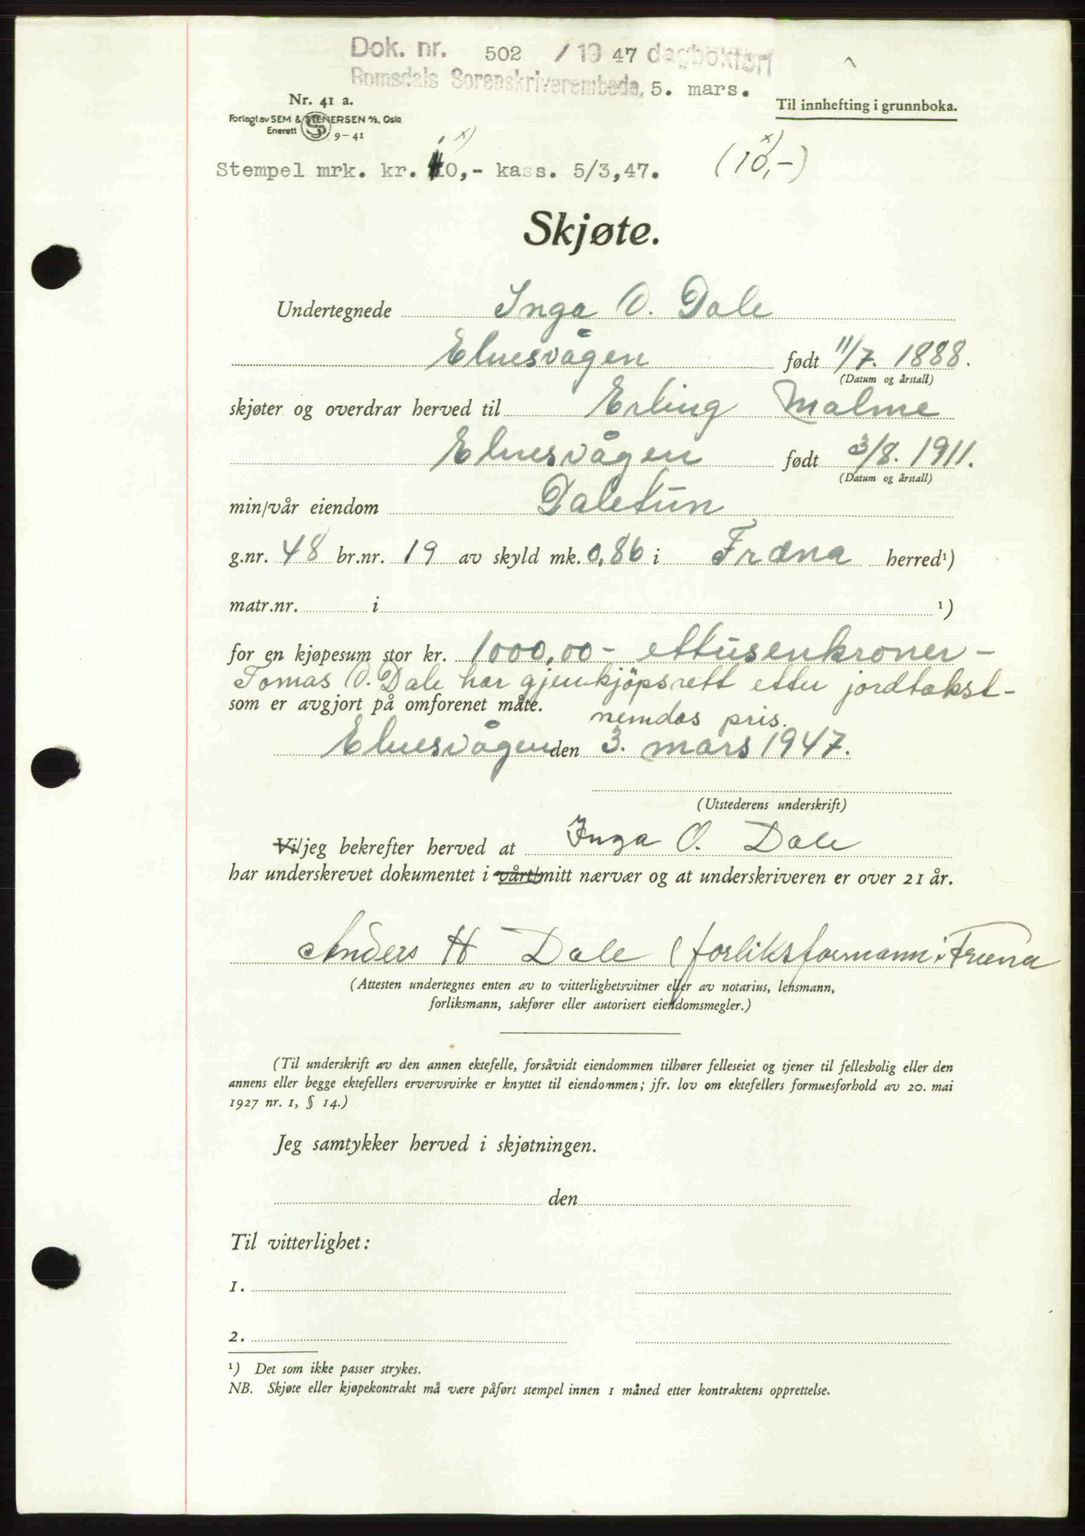 Dok. nr. 502 / 19 47 dagbokført
Romsdals Sorenskriverembede, 5. mars.
Nr. 41 a.
Til innhefting i grunnboka.
Forlagt av SEM & STENERSEN A/S, Oslo
Enerett 9-41
Stempel mrk. kr. 10,- kass. 5/3,47. x) (10,-) x)
Skjøte.
Undertegnede Inga O. Dale
Elnesvågen født 11/7. 1888.
(Datum og årstall)
skjøter og overdrar herved til Erling Malme
Elnesvågen født 3/8. 1911.
(Datum og årstall)
min/vår eiendom Daletun
g.nr. 48 br.nr. 19 av skyld mk. 0,86 i Fræna herred¹)
matr.nr. i ¹)
for en kjøpesum stor kr. 1000,00- ettusenkroner-
Tomas O. Dale har gjenkjøpsrett etter jordtakst-
som er avgjort på omforenet måte. nemdas pris.
Elnesvågen den 3. mars 1947.
(Utstederens underskrift)
Inga O. Dale
Vi/jeg bekrefter herved at
har underskrevet dokumentet i vårt/mitt nærvær og at underskriveren er over 21 år.
Anders H Dale (forliksformann i Fræna
(Attesten undertegnes enten av to vitterlighetsvitner eller av notarius, lensmann,
forliksmann, sakfører eller autorisert eiendomsmegler.)
(Til underskrift av den annen ektefelle, forsåvidt eiendommen tilhører felleseiet og tjener til fellesbolig eller den
annens eller begge ektefellers ervervsvirke er knyttet til eiendommen; jfr. lov om ektefellers formuesforhold av 20. mai
1927 nr. 1, § 14.)
Jeg samtykker herved i skjøtningen.
den
Til vitterlighet:
1.
2.
¹) Det som ikke passer strykes.
NB. Skjøte eller kjøpekontrakt må være påført stempel innen 1 måned etter kontraktens opprettelse.